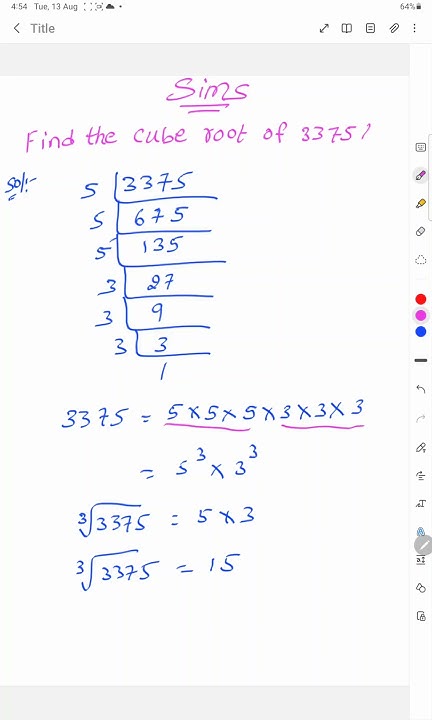 4:54 Tue, 13 Aug 64%
Title
Sims
Find the cube root of 3375?
Sol:-
5 3375
5 675
5 135
3 27
3 9
3 3
1
3375 = 5×5×5×3×3×3
= 5³×3³
∛3375 = 5×3
∛3375 = 15